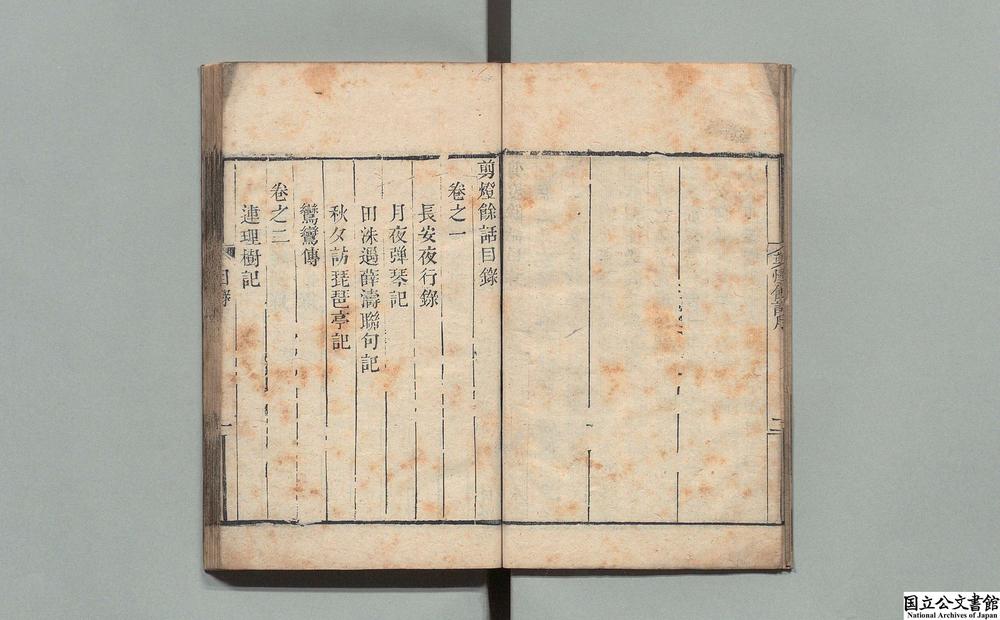 剪燈餘話目錄
卷之一
長安夜行錄
月夜弾琴記
田洙遇薛濤聯句記
秋夕訪琵琶亭記
鸞鸞傳
卷之二
連理樹記
目錄
一
二
国立公文書館
National Archives of Japan